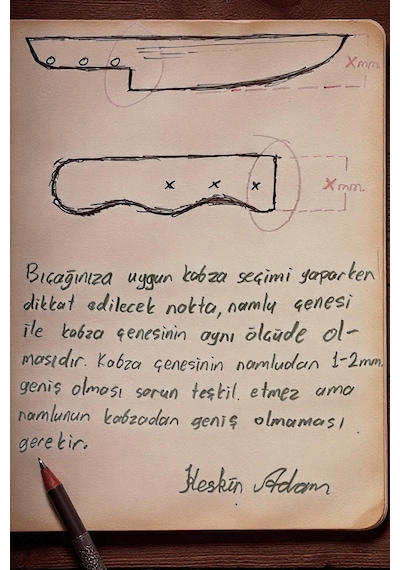 Xmm.
x x x
Xmm.
Bıçağınıza uygun kabza seçimi yaparken
dikkat edilecek nokta, namlu çenesi
ile kabza çenesinin aynı ölçüde ol-
masıdır. Kabza çenesinin namludan 1-2mm.
geniş olması sorun teşkil. etmez ama
namlunun kabzadan geniş olmaması
gerekir.
Keskin Adam